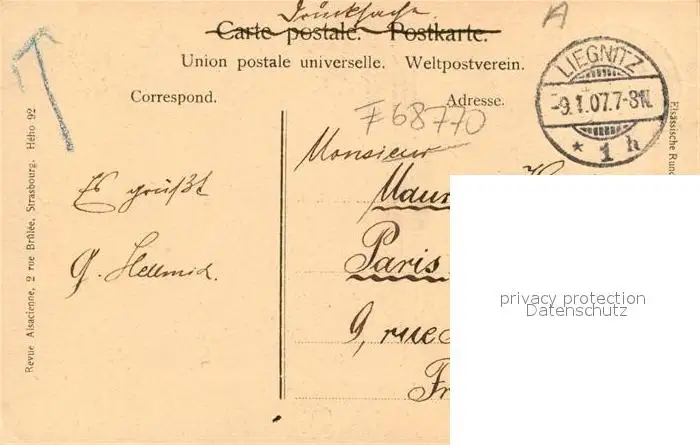 Drucksache
Carte postale. Postkarte.
Union postale universelle. Weltpostverein.
Correspond. Adresse.
A
LIEGNITZ
-9.1.07.7-8N.
* 1 h
F68770
Monsieur
Es grüßt
G. Hellmich.
Paris
9, rue
Fr
privacy protection
Datenschutz
Revue Alsacienne, 2 rue Brûlée, Strasbourg. Hélio 92
Elsässische